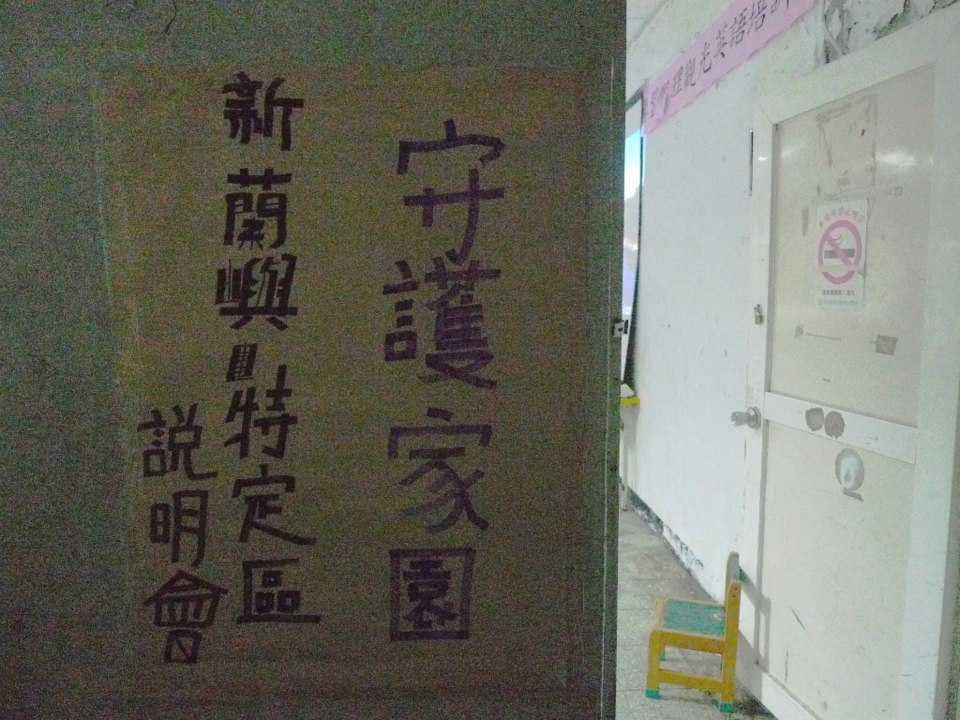 守護家園
新蘭嶼特定區
說明會
觀光英語培訓